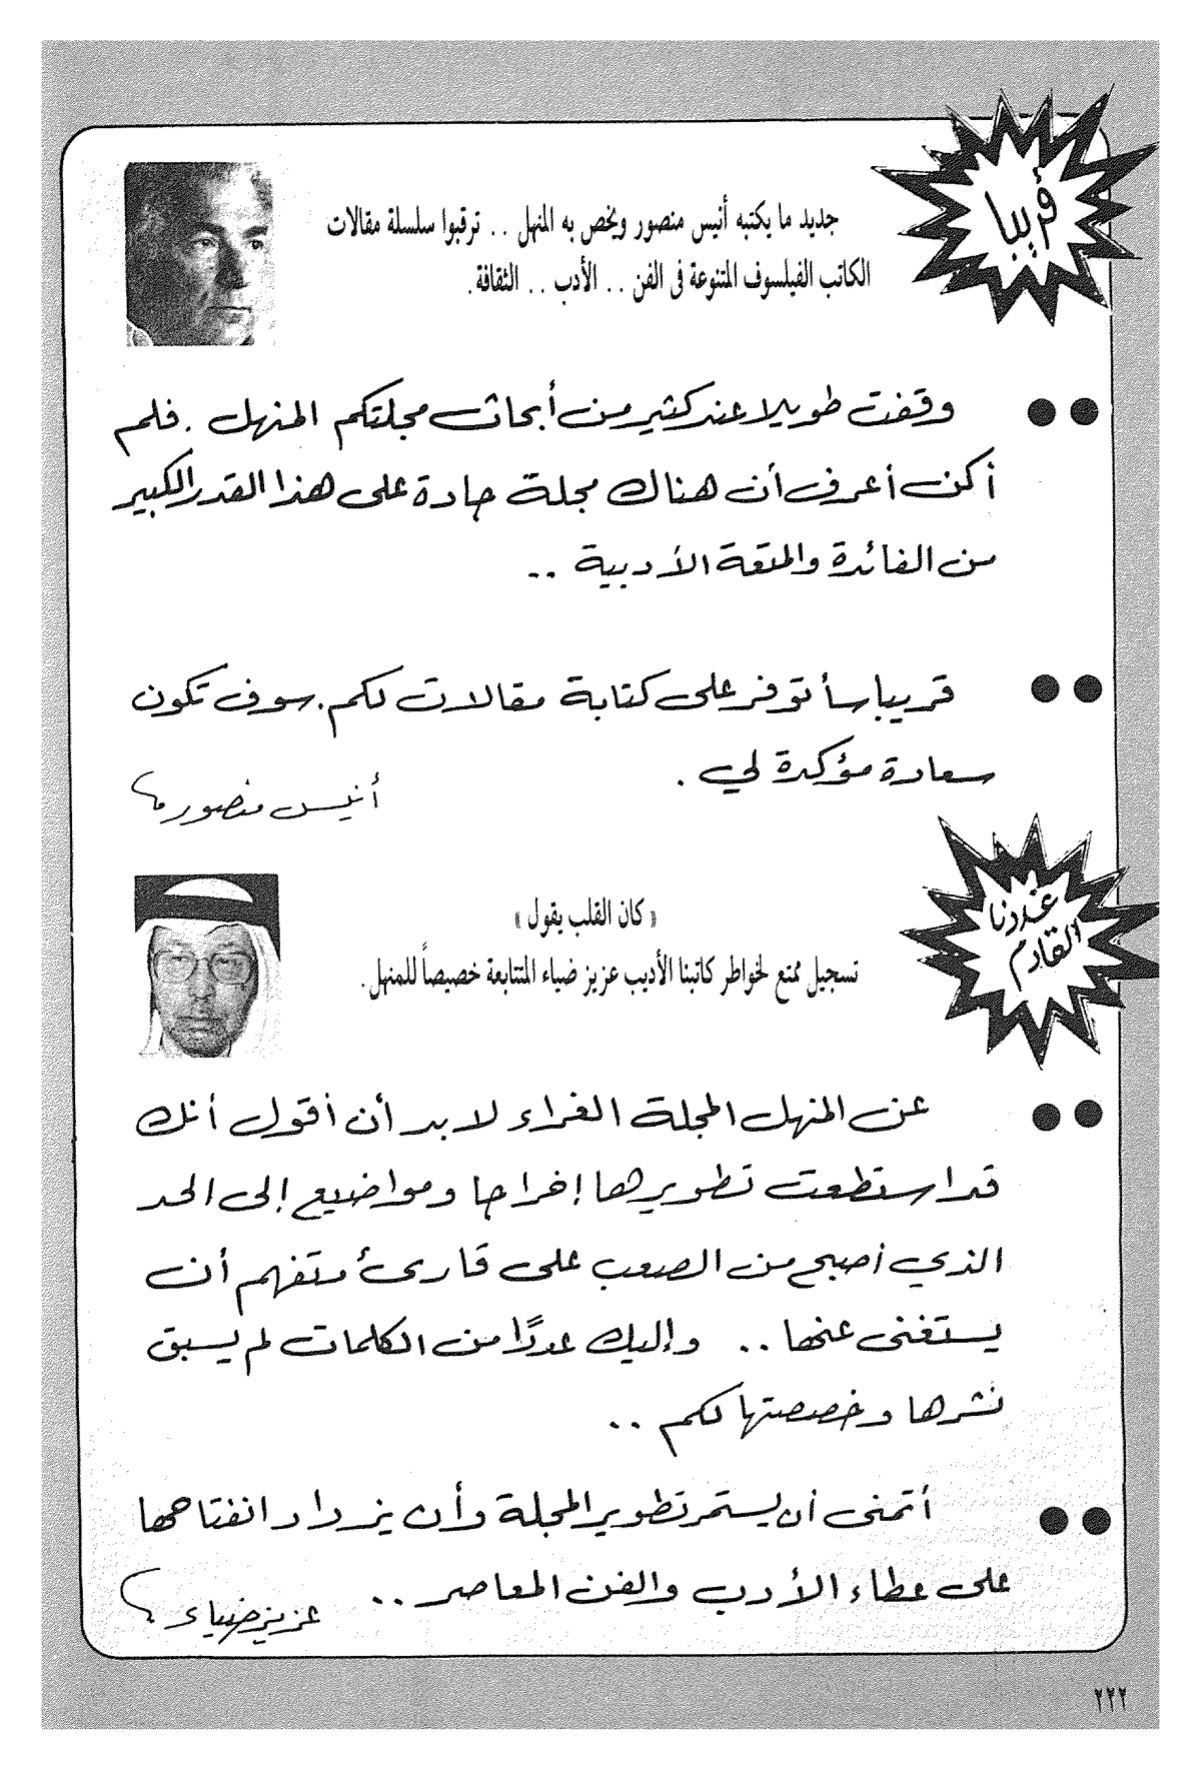 قريبا
جديد ما يكتبه أنيس منصور ويخص به المنهل .. ترقبوا سلسلة مقالات
الكاتب الفيلسوف المتنوعة فى الفن .. الأدب .. الثقافة.
وقفت طويلا عند كثير من أبحاث مجلتكم المنهل . فلم
أكن أعرف أن هناك مجلة جادة على هذا القدر الكبير
من الفائدة والمتعة الأدبية ..
قريبا سأتوفر على كتابة مقالات لكم. سوف تكون
سعادة مؤكدة لي .
أنيس منصور
عددنا
القادم
« كان القلب يقول »
تسجيل ممتع لخواطر كاتبنا الأديب عزيز ضياء المتتابعة خصيصاً للمنهل.
عن المنهل المجلة الغراء لا بد أن أقول أنك
قد استطعت تطويرها إخراجا ومواضيع إلى الحد
الذي أصبح من الصعب على قارىء متفهم أن
يستغنى عنها .. وإليك عددًا من الكلمات لم يسبق
نشرها وخصصتها لكم ..
أتمنى أن يستمر تطوير المجلة وأن يزداد انفتاحها
على عطاء الأدب والفن المعاصر ..
عزيز ضياء
٢٢٢